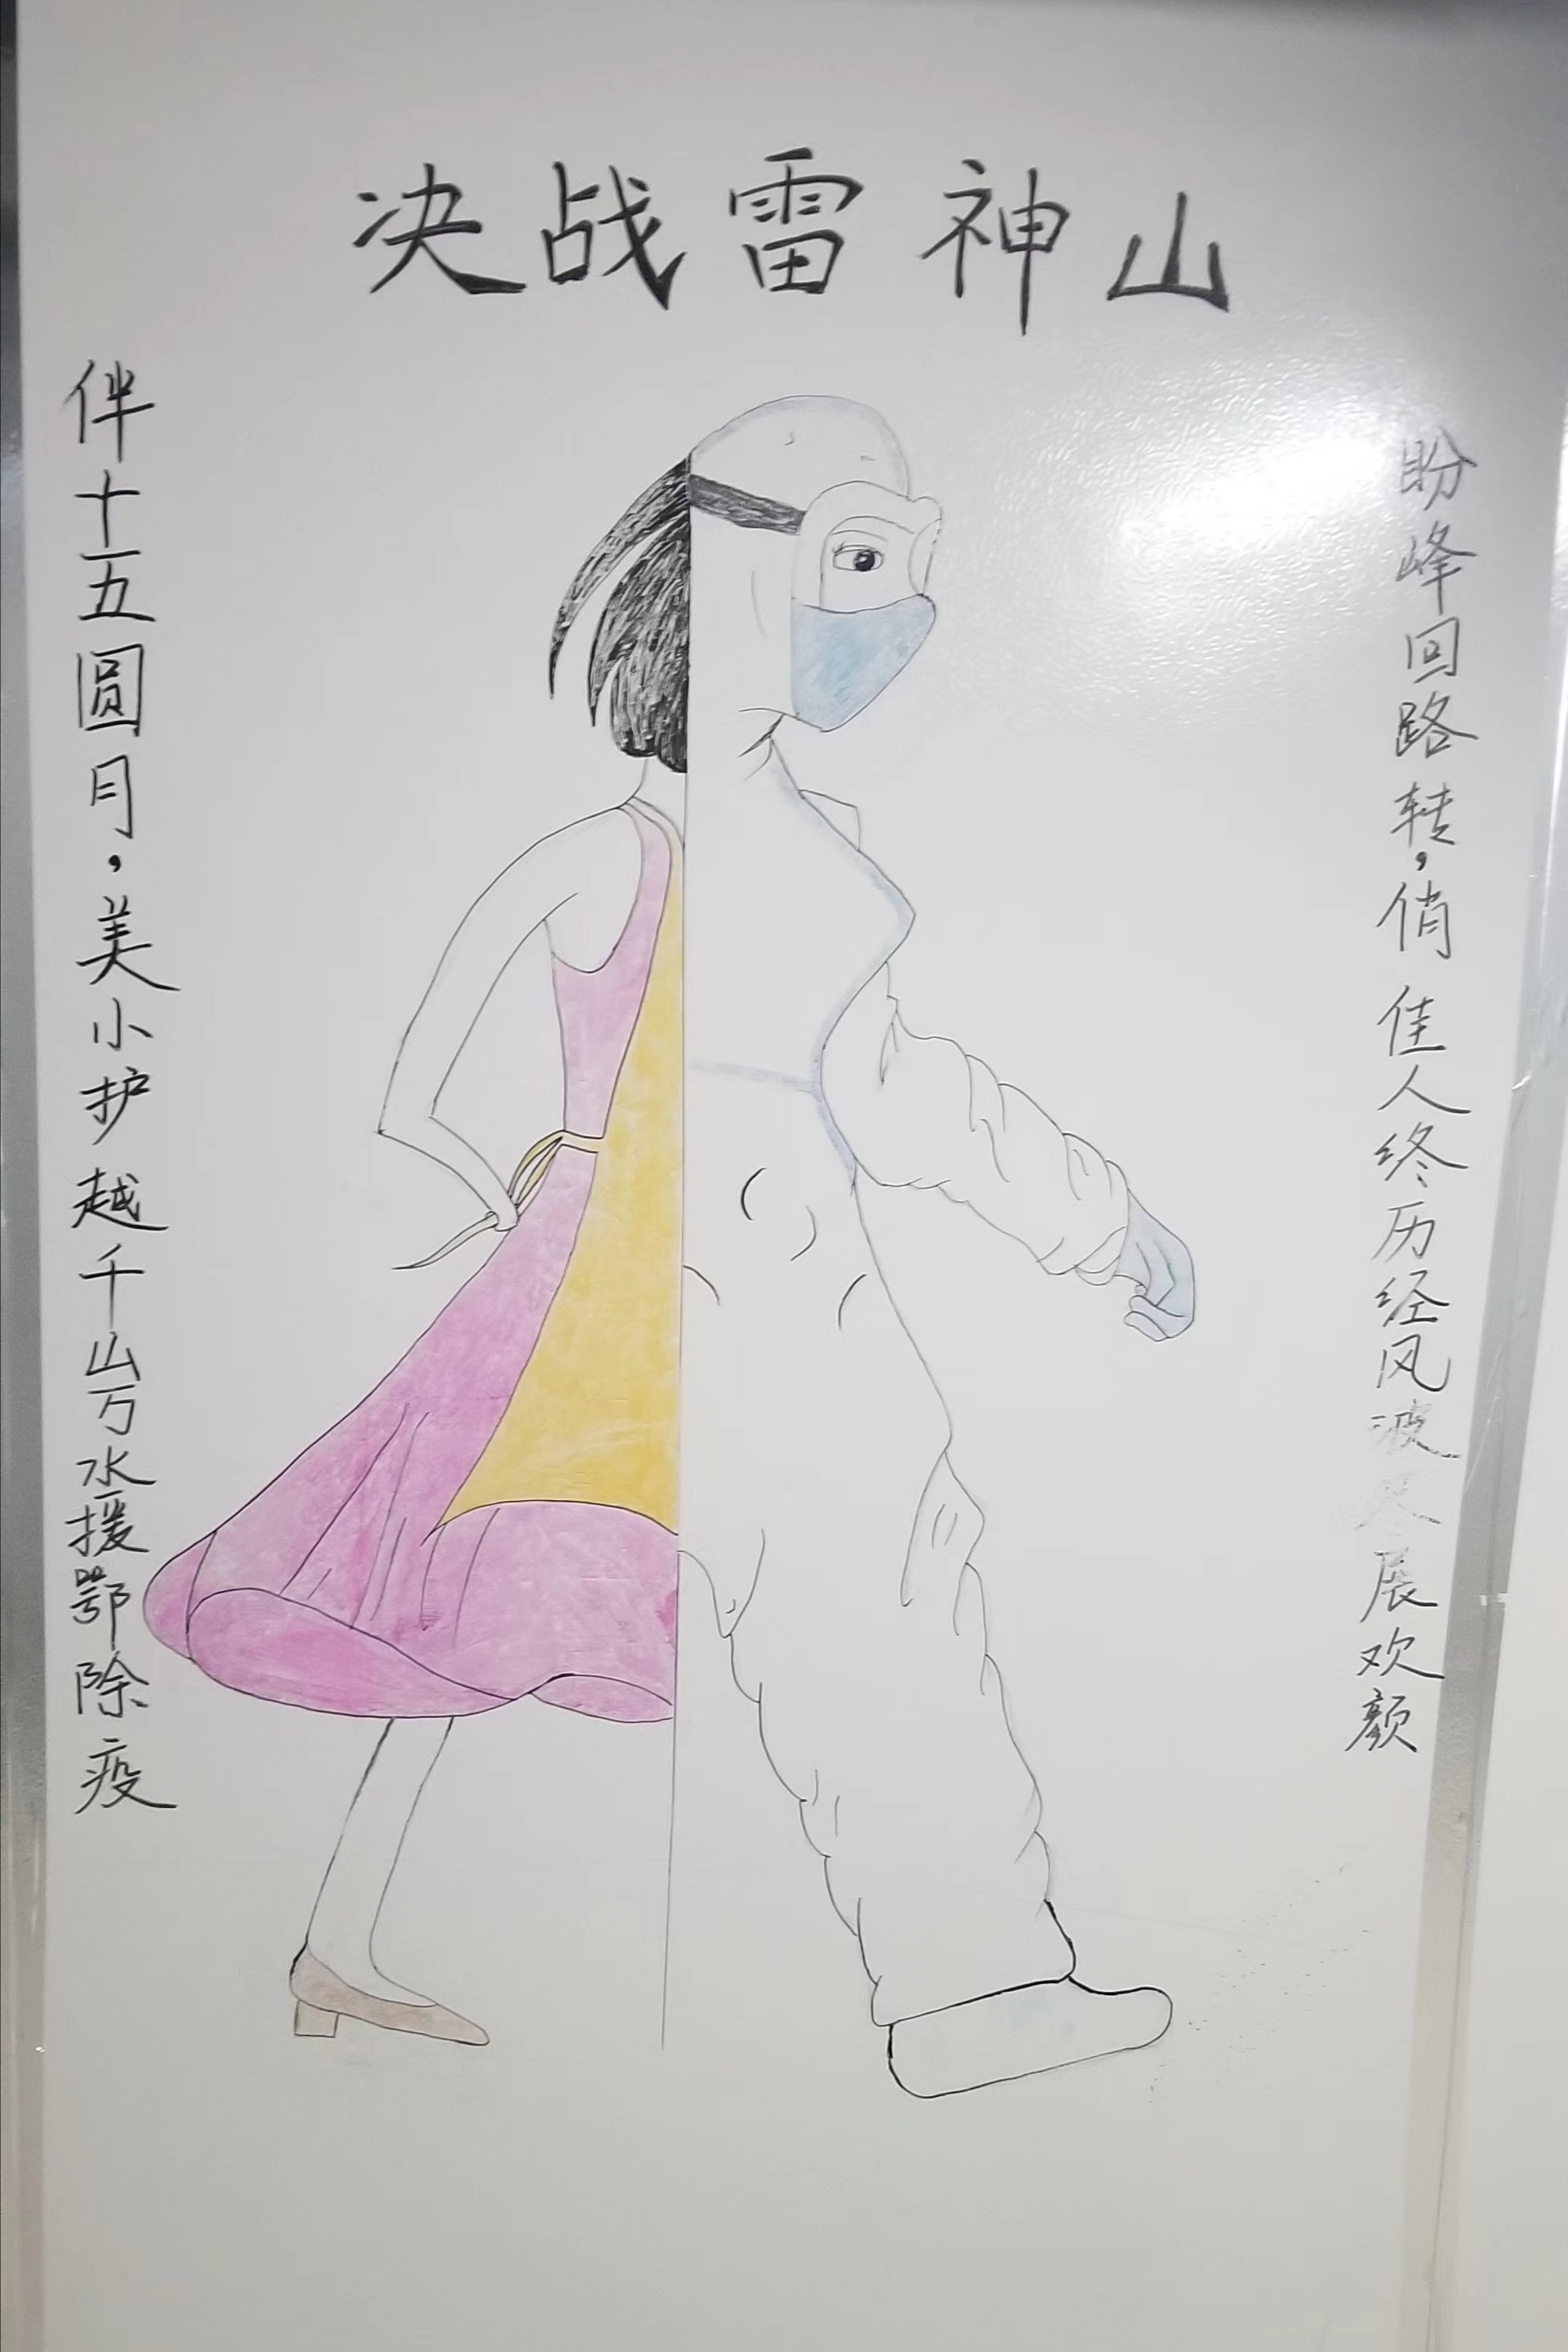 决战雷神山
伴十五圆月，美小护越千山万水援鄂除疫
盼峰回路转，俏佳人终历经风波尽展欢颜